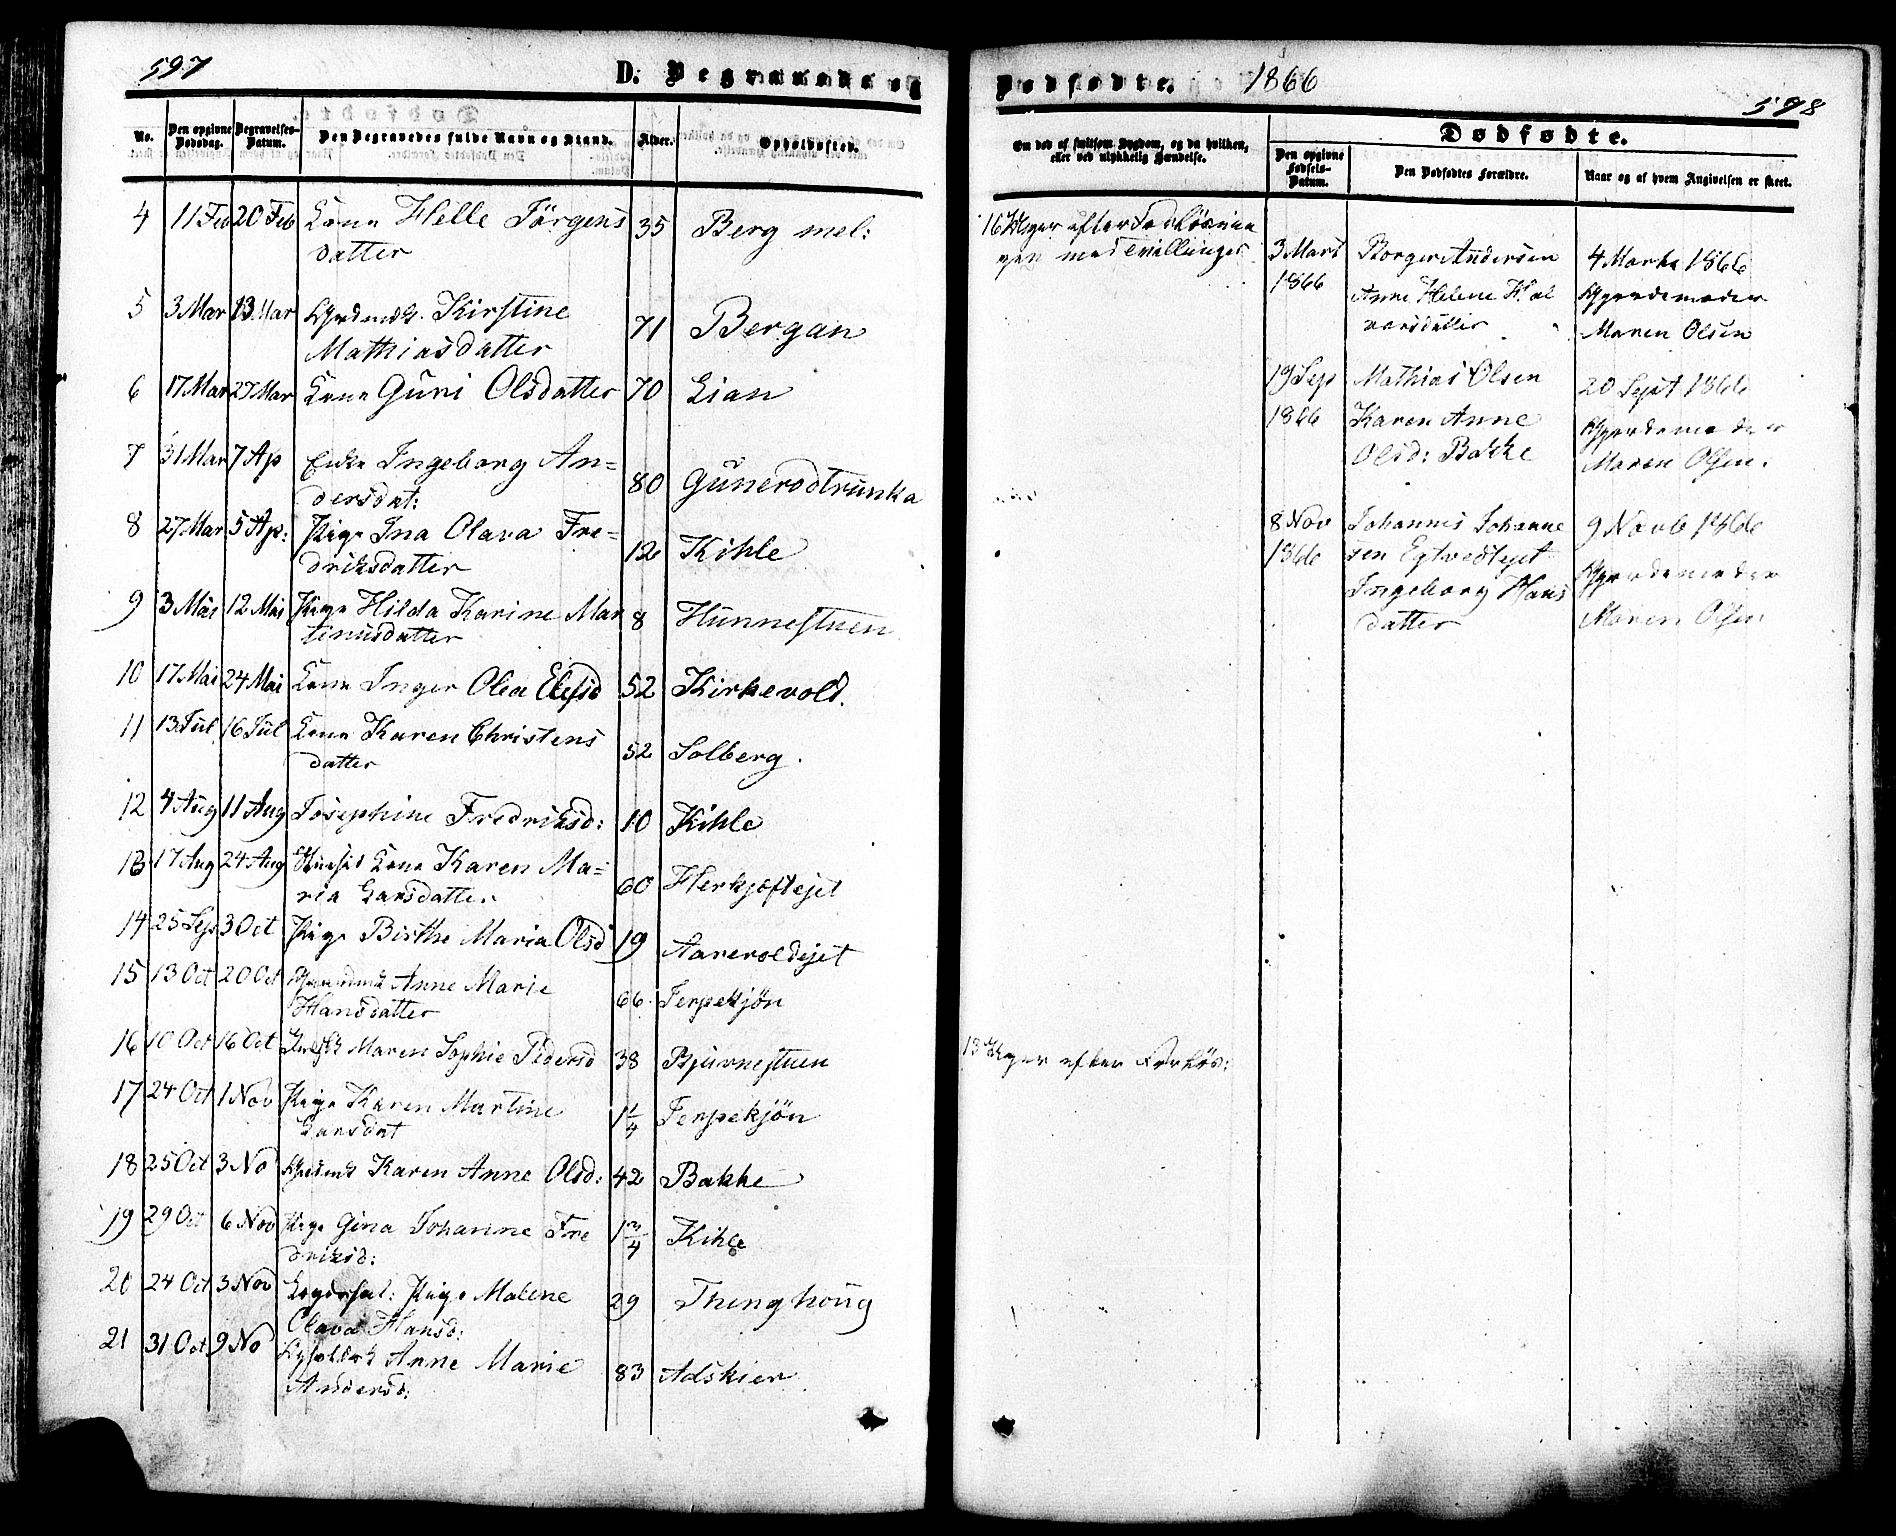 597
D. Begravede og
No.
Den opgivne Dødsdag.
Begravelses-Datum.
Den Begravedes fulde Navn og Stand.
Alder.
Opholdssted.
4 11 Feb 20 Feb Kone Helle Jörgens 35 Berg mel:
datter
5 3 Mar 13 Mar Kirstine 71 Bergan
Mathiasdatter
6 17 Mar 27 Mar Kone Guri Olsdatter 70 Lian
7 31 Mar 7 Ap Enke Ingeborg An= 80 Gunerodtrunka
dersdat:
8 27 Mar 5 Ap: Pige Ina Olava Fre= 12 Kihle
driksdatter
9 3 Mai 12 Mai Pige Hilda Karine Mar 8 Hunnestuen
tinusdatter
10 17 Mai 24 Mai Kone Inger Olea 52 Kirkevold.
11 13 Jul 16 Jul Kone Karen Christens 52 Solberg.
datter
12 4 Aug 11 Aug Josephine Fredriksd: 10 Kihle
13 17 Aug 24 Aug Kone Karen Ma= 60
ria Larsdatter
14 25 Sep 3 Oct Pige Birthe Maria Olsd 19 Aarevoldejet
15 13 Oct 20 Oct Anne Marie 66 Jerpekjön
Hansdatter
16 10 Oct 16 Oct Maren Sophie Pedersd 38 Bjurnestuen
17 24 Oct 1 Nov Pige Karen Martine 1 1/4 Jerpekjön
Larsdat
18 25 Oct 3 No Karen Anne Olsd: 42 Bakke
19 29 Oct 6 Nov Pige Gina Johanne Fre 1 3/4 Kihle
driksd:
20 24 Oct 3 Nov Pige Malene 29 Thinghoug
Olava Hansd:
21 31 Oct 9 No Anne Marie 83 Adskier
Andersd:
Dødfødte. 1866
598
Om død af smitsom Sygdom, og da hvilken,
eller ved ulykkelig Hændelse.
Dødfødte.
Den opgivne Fødsels-Datum.
Den Dødfødtes Forældre.
Naar og af hvem Angivelsen er skeet.
efter
med Tvillinger
3 Mars Borger Andersen 4 Marts 1866
1866 Anne Helene Hal Gjordemoder
vorsdatter Maren Olsen
19 Sep Mathias Olsen 20 Sept 1866
1866 Karen Anne Gjordemoder
Olsd: Bakke Maren Olsen.
8 Nov Johannes Johanne 9 Novb 1866
1866 sen Egtvedtejet Gjordemoder
Ingeborg Hans Maren Olsen
datter
efter